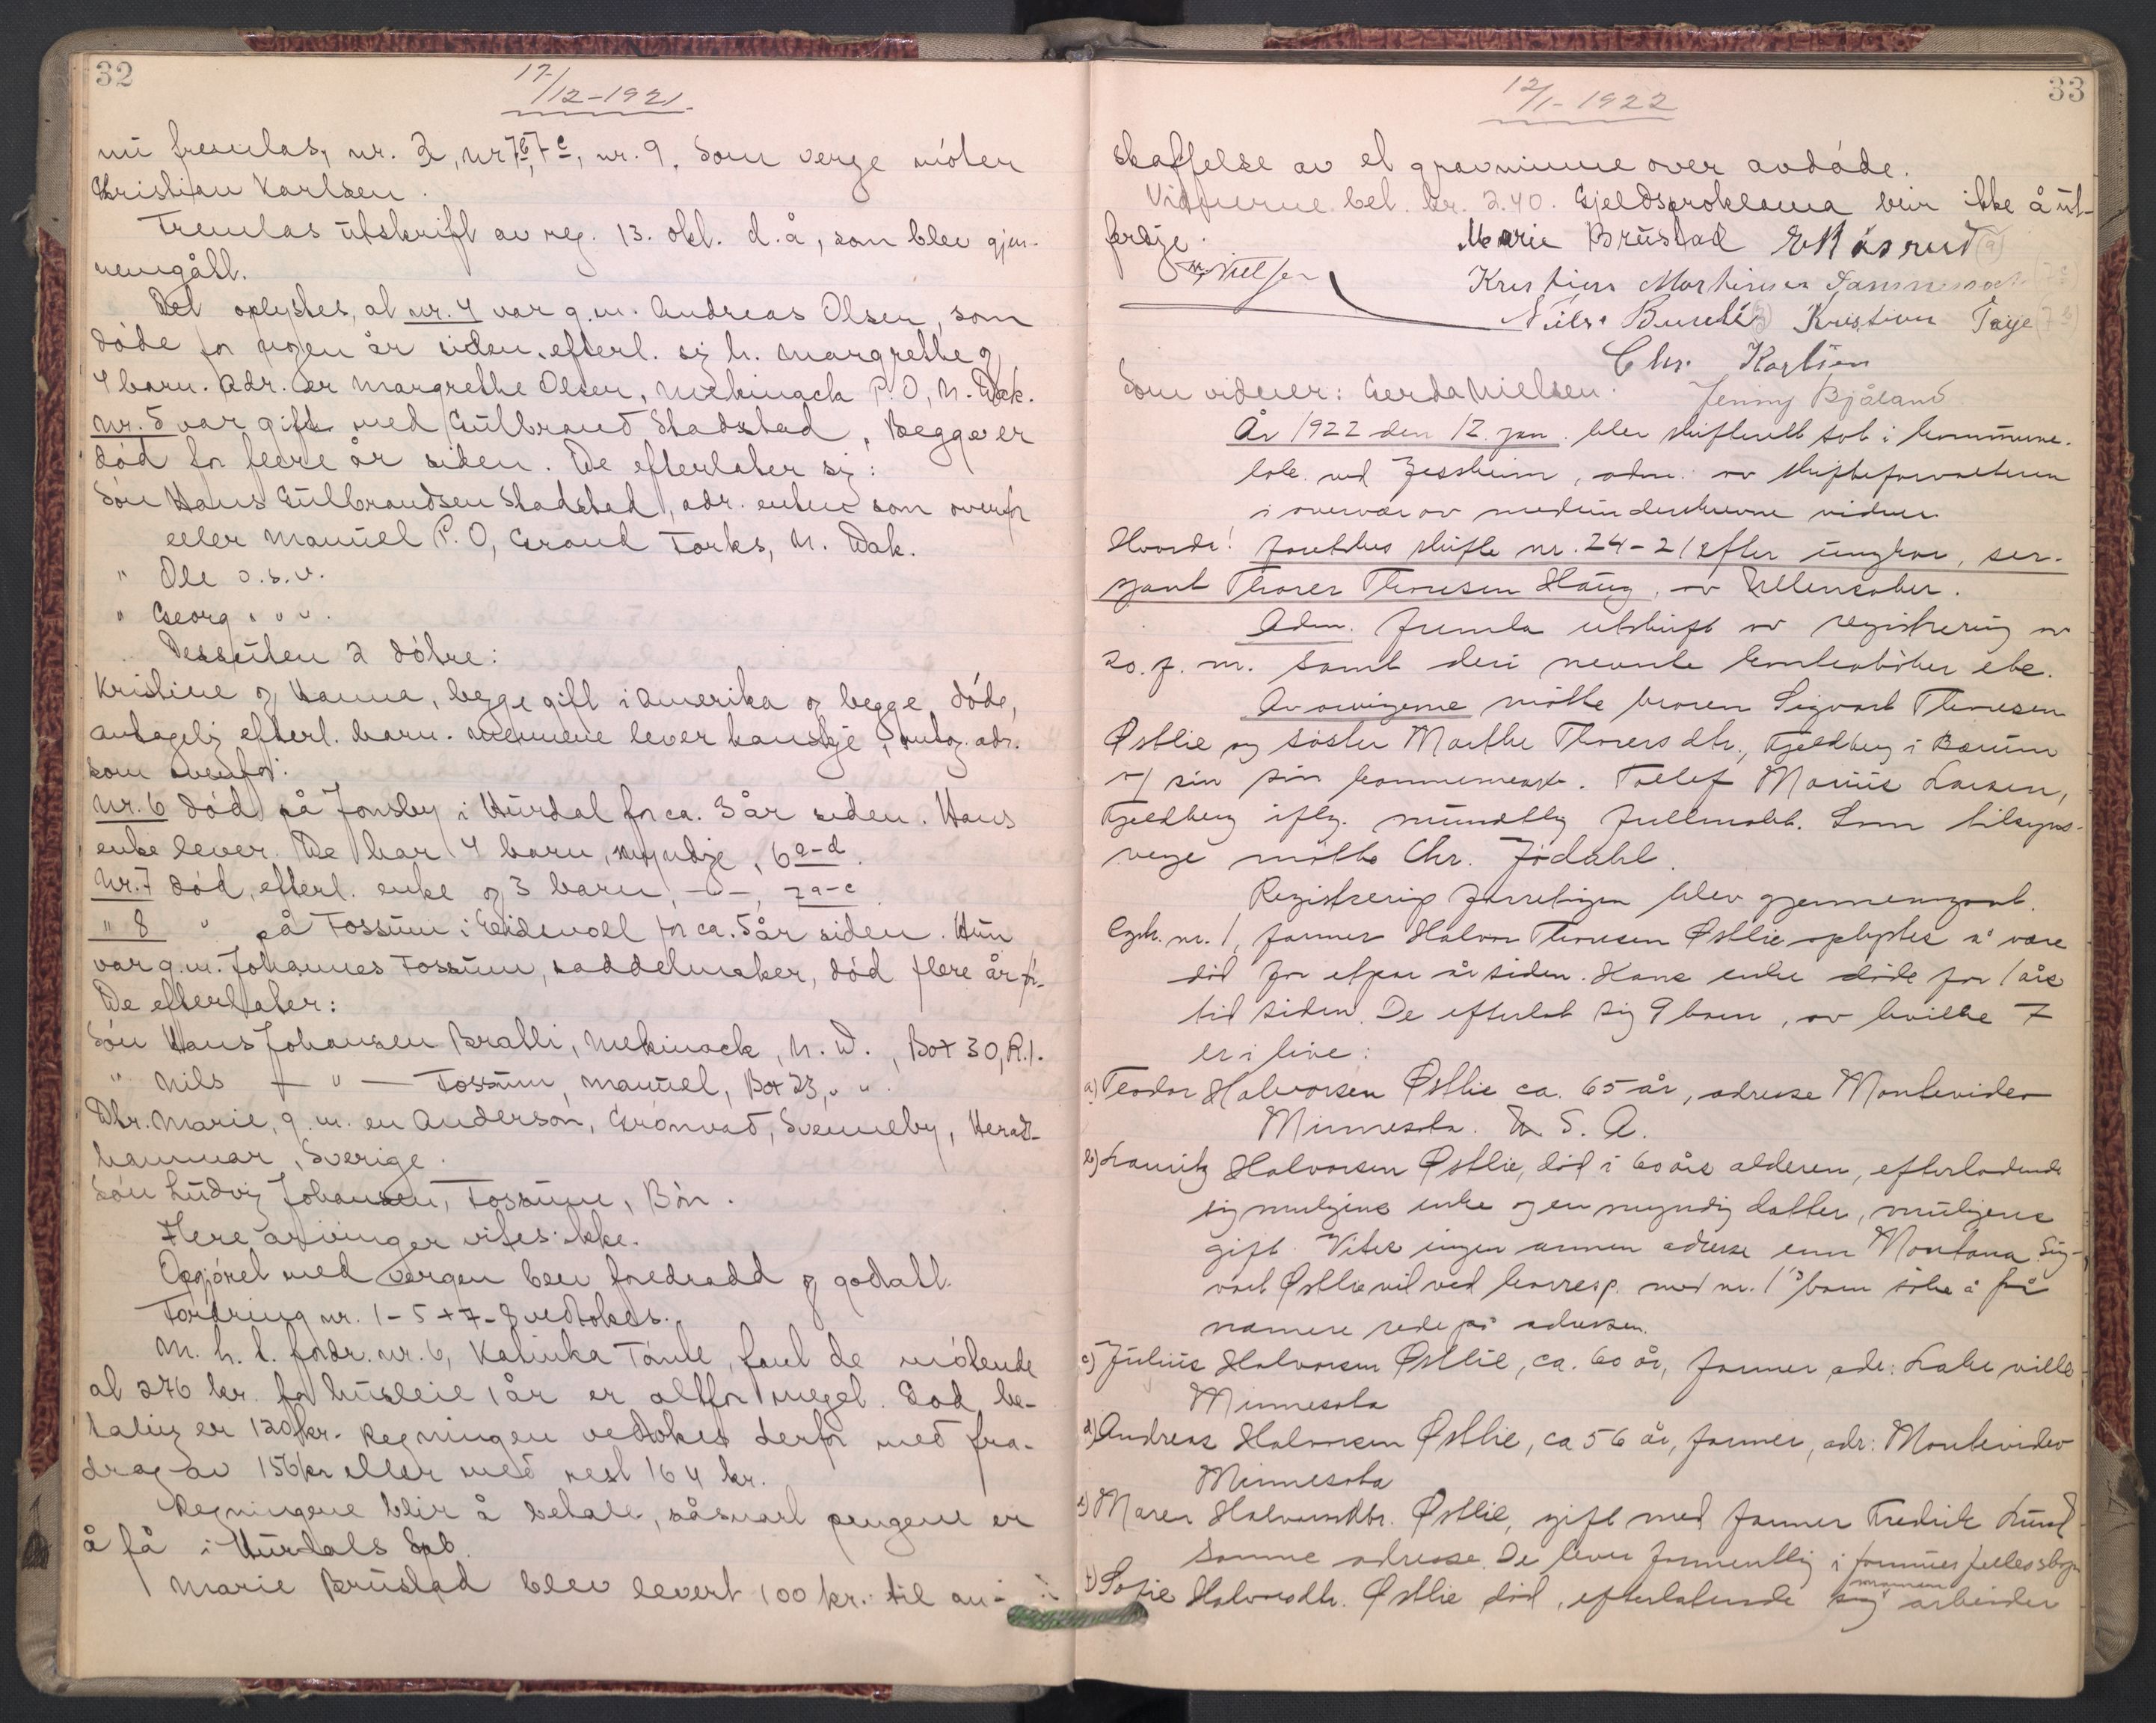 32
17/12-1921.
nu fremlas, nr. 2, nr 7b, 7c, nr. 9. Som verge möter
Kristian Karlsen.
Fremlas utskrift av reg. 13. okt. d.å, som blev gjen-
nemgått.
Det oplystes, at nr. 4 var g.m. Andreas Olsen, som
döde for nogen år siden, efterl. sig h. Margrethe og
4 barn. Adr. er Margrethe Olsen, Mekinock P.O, N. Dak.
Nr. 5 var gift med Gulbrand Stadstad. Begge er
död for flere år siden. De efterlater sig:
Sön Hans Gulbrandsen Stadstad, adr. enten som ovenfor
eller Manvel P.O, Grand Forks, N. Dak.
" Ole o.s.v.
" Georg " " "
Dessuten 2 dötre:
Kristine og Hanna, begge gift i Amerika og begge döde,
antagelig efterl. barn. Mennene lever kanskje, antag. adr.
som ovenfor.
Nr. 6 död på Jonsby i Hurdal for ca. 3 år siden. Hans
enke lever. De har 4 barn, myndige, 6 a-d.
Nr. 7 död, efterl. enke og 3 barn, -"-, 7 a-c
" 8 " på Fossum i Eidsvoll for ca. 5 år siden. Hun
var g.m. Johannes Fossum, saddelmaker, död flere år för.
De efterlater:
Sön Hans Johansen Bratli, Mekinock, N. D., Box 30, R.1.
" Nils — " — Fossum, Manvel, Box 23, " "
Dtr. Marie, g.m. en Anderson, Grönvad, Svenneby,
hammar, Sverige.
Sön Ludvig Johansen, Fossum, Bön.
Flere arvinger vites ikke.
Opgjöret med vergen blev foredradd og godtatt.
Fordring nr. 1-5 + 7-8 vedtokes.
M.h.t. fordr. nr. 6, Kalinka Tömte, fant de mötende
at 276 kr. for husleie 1 år er altfor meget. God be-
taling er 120 kr. Regningen vedtokes derfor med fra-
drag av 156 kr eller med rest 164 kr.
Regningene blir å betale, såsnart pengene er
å få i Hurdals Spb.
Marie Brustad blev levert 100 kr. til an-
33
12/1-1922
skaffelse av et gravminne over avdöde.
Vidnerne bet. kr. 2.40. Gjeldsproklama blir ikke å ut-
ferdige.
Marie Brustad E Råsrud (9)
Nielsen
Kristian Martinius (7c)
Nils Kristian (7b)
Chr. Karlsen
Som vidner: Gerda Nielsen. Jenny Bjåland
År 1922 den 12. jan. blev skifterett satt i kommune-
lok. ved Jessheim, adm. av skifteforvalteren
i overvær av medunderskrevne vidner
Hvorda! Foretokes skifte nr. 24-21 efter ungkar, ser-
sjant Thorer Thoresen Haug, av Ullensaker.
Adm. fremla utskrift av registrering av
20. f. m. samt deri nevnte kontraböker etc.
Av arvingerne mötte broren Sigvart Thoresen
Østlie og söster Marthe Thorersdtr., Fjeldberg i Bærum
v/ sin sön Tollef Marius Larsen,
Fjeldberg iflg. mundtlig fullmakt. Som tilsyns-
verge mötte Chr. Jödahl.
Registrering forretningen blev gjennemgaat.
nr. 1, farmer Halvor Thoresen Østlie oplystes å være
död for etpar år siden. Hans enke döde for 1 års
tid siden. De efterlot sig 9 barn, av hvilke 7
er i live:
a) Teodor Halvorsen Østlie ca. 65 år, adresse Montevideo
Minnesota. U. S. A.
b) Lauritz Halvorsen Østlie, död i 60 års alderen, efterladende
sig muligens enke og en myndig datter, muligens
gift. Vites ingen annen adresse enn Montana. Sig-
vart Østlie vil ved korresp. med nr. 1's barn söke å få
nærmere rede på adressen.
c) Julius Halvorsen Østlie, ca. 60 år, farmer adr: Lake ville
Minnesota
d) Andreas Halvorsen Østlie, ca 56 år, farmer, adr: Montevideo
Minnesota
e) Maren Halvorsdtr. Østlie, gift med farmer Fredrik Lund
samme adresse. De lever formentlig i formues fellesskap
f) Sofie Halvorsdtr. Østlie död, efterlatende sig mannen arbeider